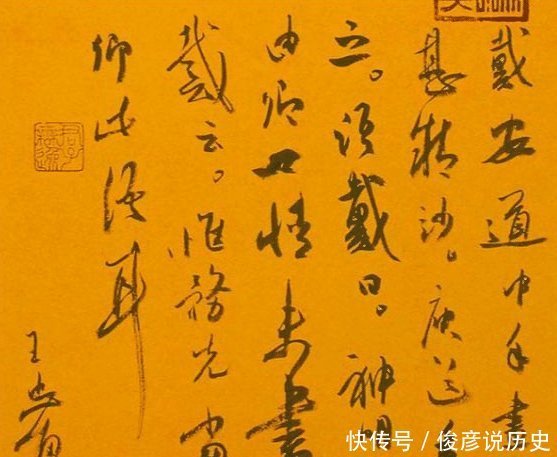 戴安道中年畫
甚精妙。庾道季
之。語戴曰。神明
由卿世情未盡
戴云。惟務光當
卿此語耳
王
快传号 / 俊彦说历史